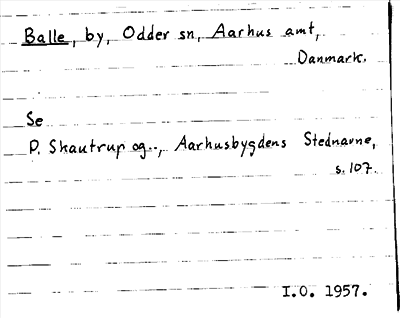 Balle, by, Odder sn, Aarhus amt,
Danmark.
Se
P. Skautrup og.., Aarhusbygdens Stednavne,
s. 107.
I.O. 1957.